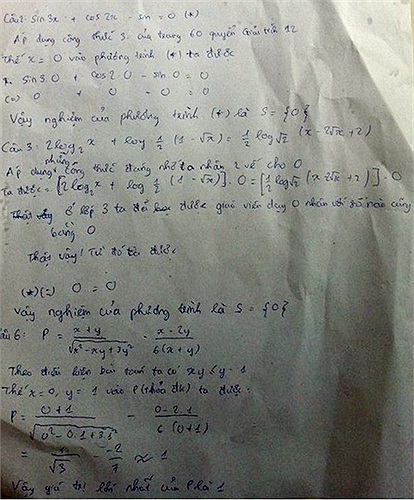 Câu 2: sin 3x + cos 2x - sin = 0 (*)
Áp dụng công thức 3 của trang 60 quyển Giải tích 12
Thế x = 0 vào phương trình (*) ta được
sin 3.0 + cos 2.0 - sin 0 = 0
(=) 0 + 0 - 0 = 0
Vậy nghiệm của phương trình (*) là S = {0}
Câu 3: 2 log₂ x + log ½ (1 - √x) = ½ log√2 (x - 2√x + 2)
Áp dụng những công thức đáng nhớ ta nhân 2 vế cho 0
Ta được = [2 log₂ x + log ½ (1 - √x)] . 0 = [½ log√2 (x - 2√x + 2)] . 0
Thật vậy ở lớp 3 ta đã học được giáo viên dạy 0 nhân với số nào cũng
bằng 0
Thật vậy! Từ đó ta được
(*) (=) 0 = 0
Vậy nghiệm của phương trình là S = {0}
Câu 6: P = (x + y)/√(x² - xy + 3y²) - (x - 2y)/(6(x + y))
Theo điều kiện bài toán ta có xy ≤ y - 1
Thế x = 0, y = 1 vào P (thỏa đk) ta được:
P = (0 + 1)/√(0² - 0.1 + 3.1²) - (0 - 2.1)/(6(0 + 1))
= 1/√3 - -2/7 ≈ 1
Vậy giá trị lớn nhất của P là 1